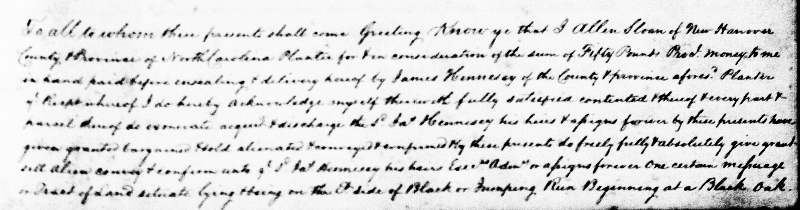 To all to whom these presents shall come Greeting Know ye that I Allen Sloan of New Hanover
County & Province of North Carolina Planter for & in consideration of the sum of Fifty Pounds Proc. money, to me
in hand paid before ensealing & delivery hereof by James Hennesey of the County & province afores.d Planter
ye. Recpt whereof I do hereby acknowledge myself therewith fully satisfied contented & thereof & every part &
parcel thereof do exonerate acquit & discharge the Sd. Jas. Hennesey his heirs & assigns forever by these presents have
given granted bargained & sold aliened & conveyed & confirmed & by these presents do freely fully & absolutely give grant
sell Alien convey & confirm unto ye. Sd. Jas. Hennesey his heirs Exers. Admrs. or assigns forever One certain messuage
or Tract of Land situate lying & being on the Et. Side of Black or Jumping Run Beginning at a Black Oak.